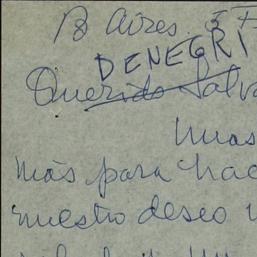 B Aires - 5 F
DENEGRI
Querido Salv
Unas
más para hac
nuestro deseo